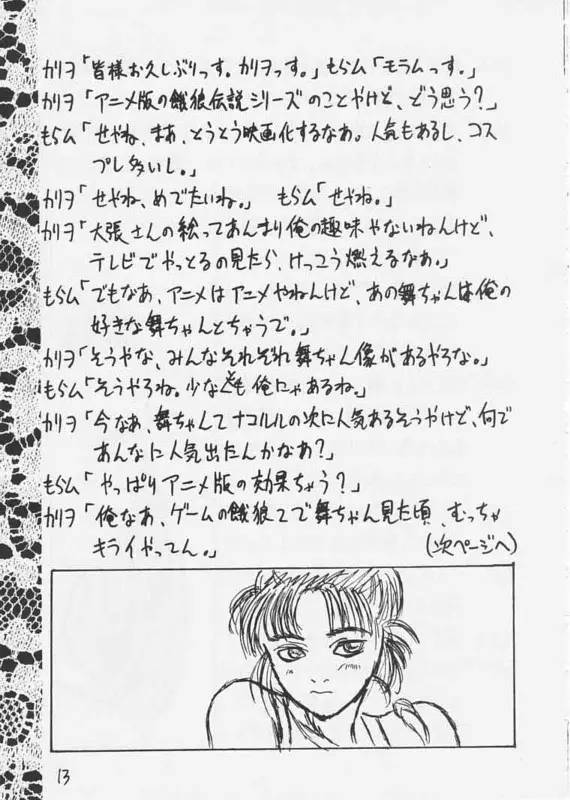 カリヲ「皆様お久しぶりっす。カリヲっす。」もらム「モラムっす。」
カリヲ「アニメ版の餓狼伝説シリーズのことやけど、どう思う?」
もらム「せやね、まあ、とうとう映画化するなあ。人気もあるし、コス
プレ多いし。」
カリヲ「せやね、めでたいね。」 もらム「せやね。」
カリヲ「大張さんの絵ってあんまり俺の趣味やないねんけど、
テレビでやっとるの見たら、けっこう燃えるなあ。」
もらム「でもなあ、アニメはアニメやねんけど、あの舞ちゃんは俺の
好きな舞ちゃんとちゃうで。」
カリヲ「そうやな、みんなそれぞれ舞ちゃん像があるやろな。」
もらム「そうやろね。少なくとも俺にゃあるね。」
カリヲ「今なあ、舞ちゃんてナコルルの次に人気あるそうやけど、何で
あんなに人気出たんかなあ?」
もらム「やっぱりアニメ版の効果ちゃう?」
カリヲ「俺なあ、ゲームの餓狼2で舞ちゃん見た頃、むっちゃ
キライやってん。」 (次ページへ)
13